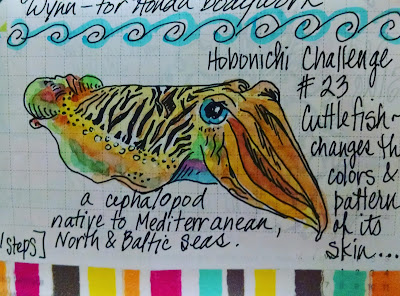 Wynn-for Honda Bodywork
Hobonichi Challenge
# 23
Cuttlefish~
changes th
colors &
pattern
of its
skin...
a cephalopod
native to Mediterranean,
North & Baltic Seas.
steps]